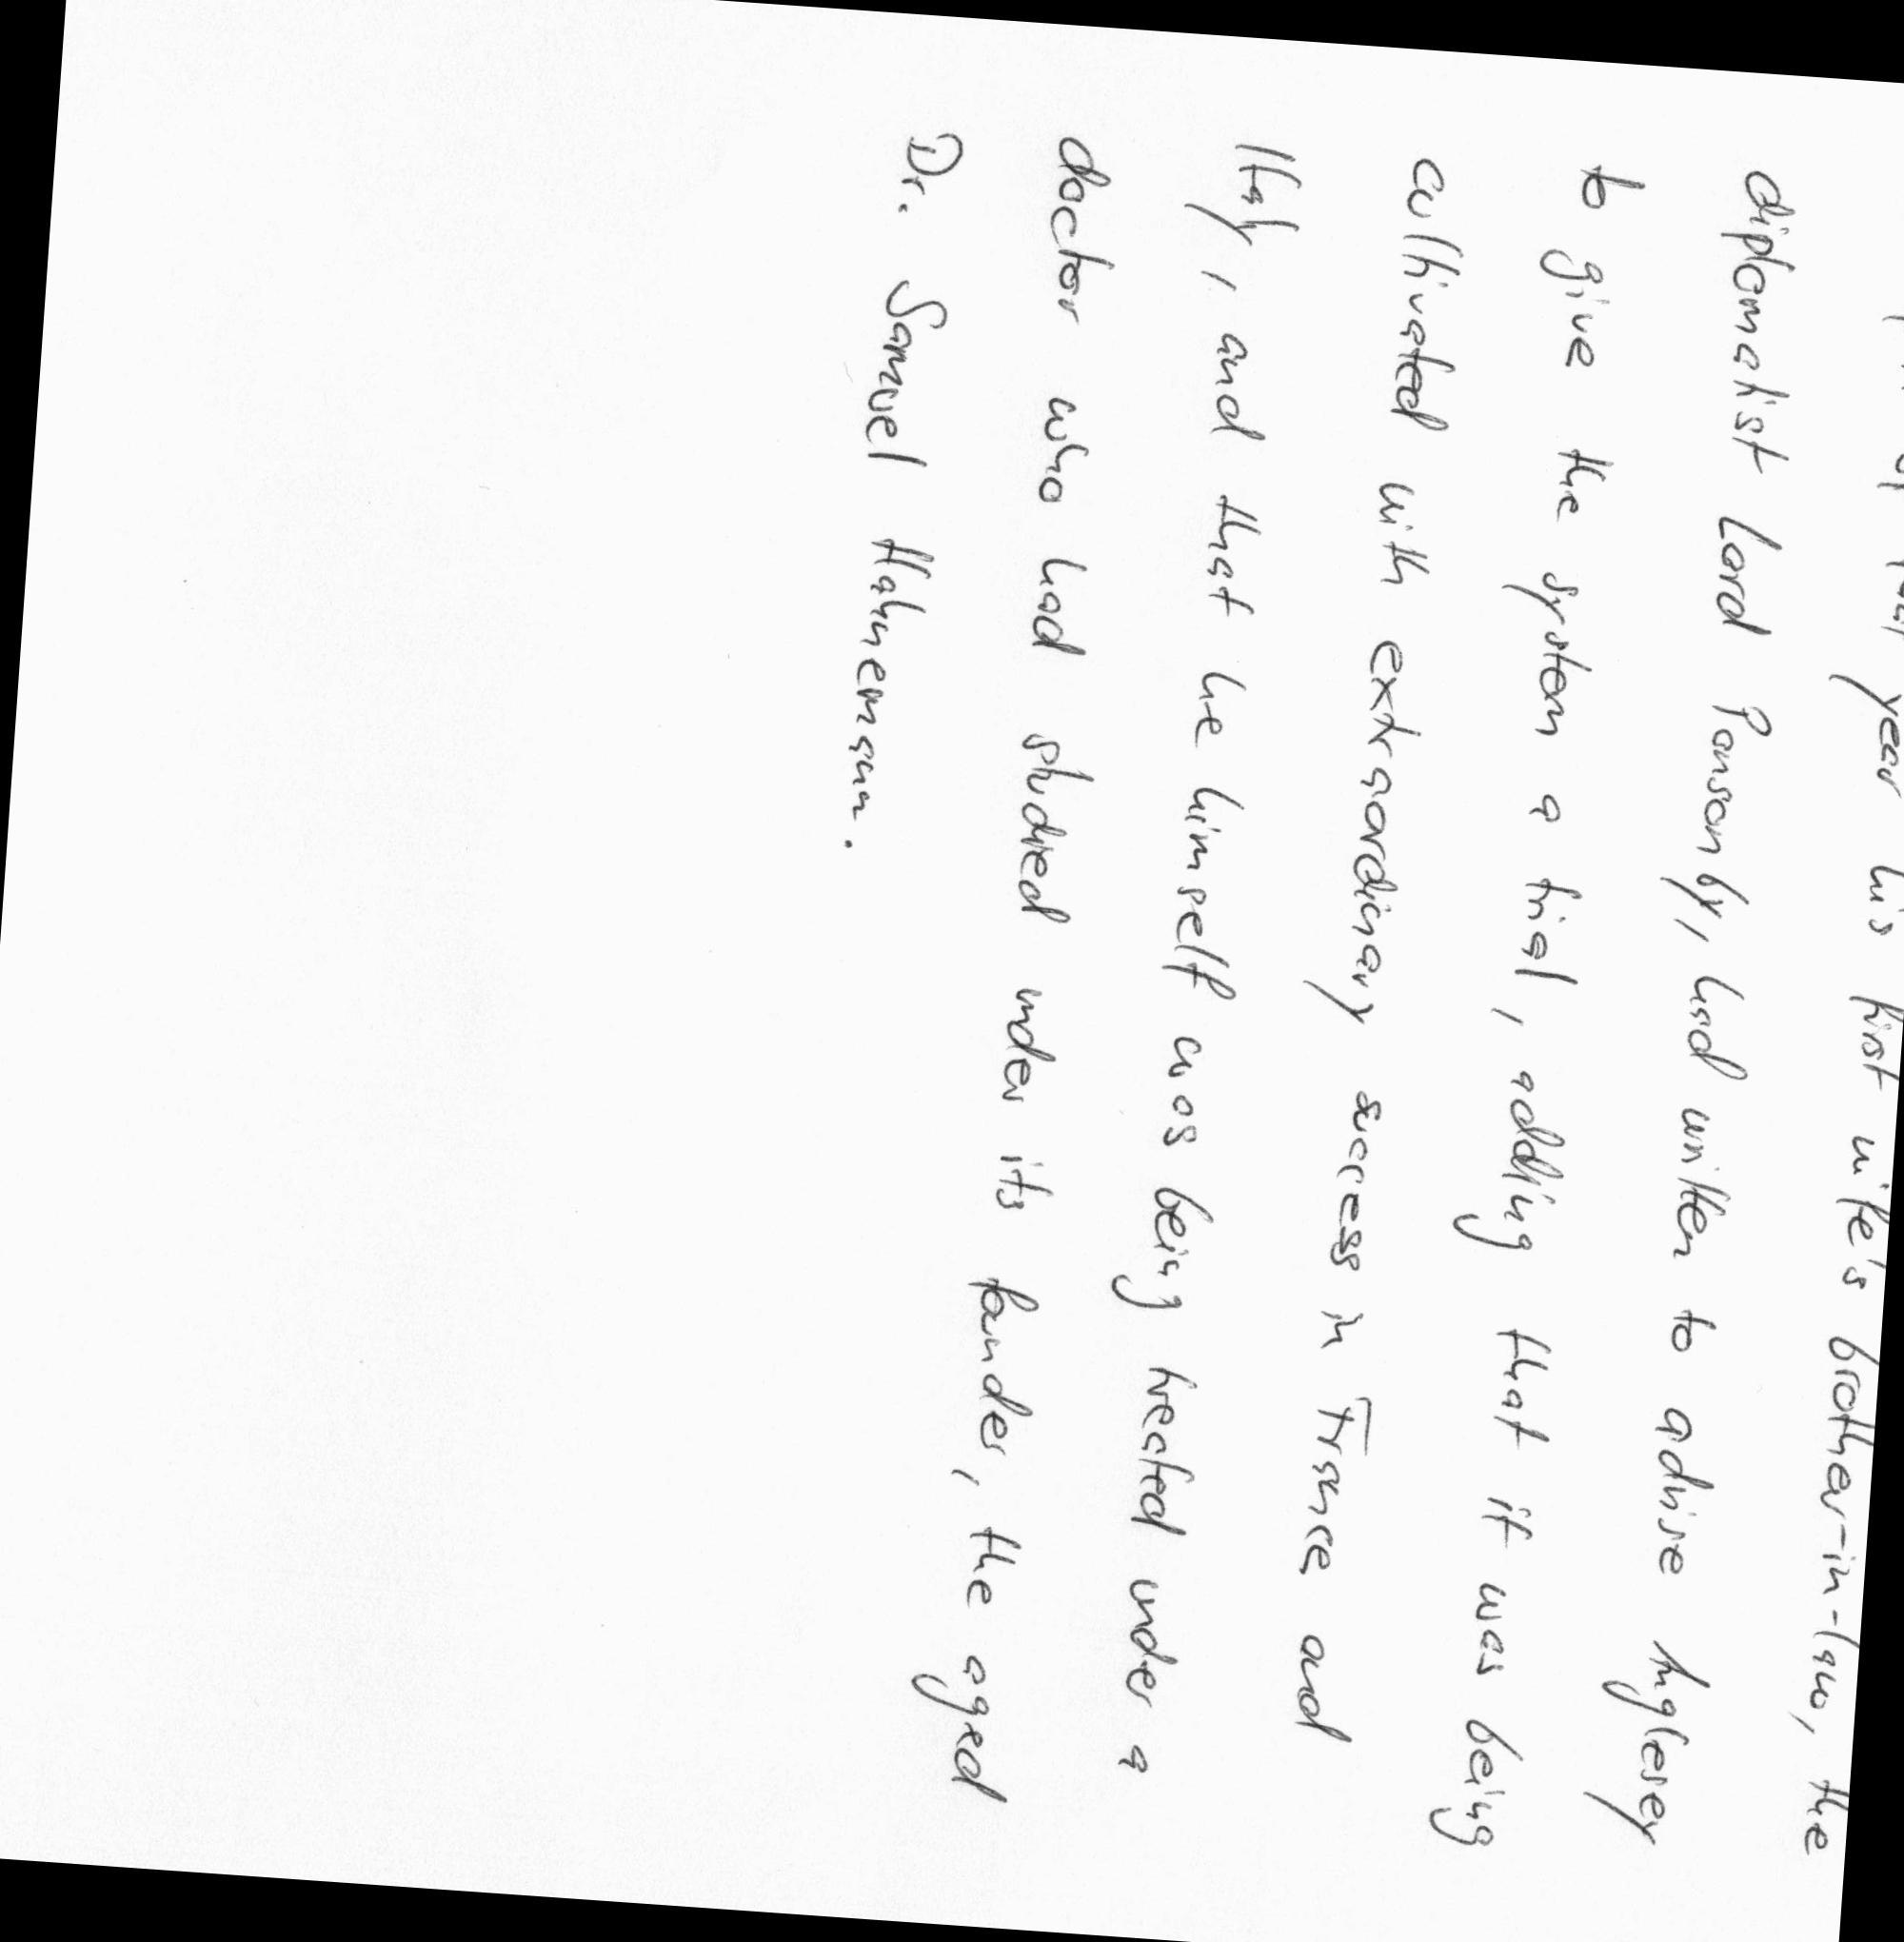 year his first wife's brother-in-law, the
diplomatist Lord Ponsonby, had written to advise Anglesey
to give the system a trial, adding that it was being
cultivated with extraordinary success in France and
Italy, and that he himself was being treated under a
doctor who had studied under its founder, the aged
Dr. Samuel Hahnemann.